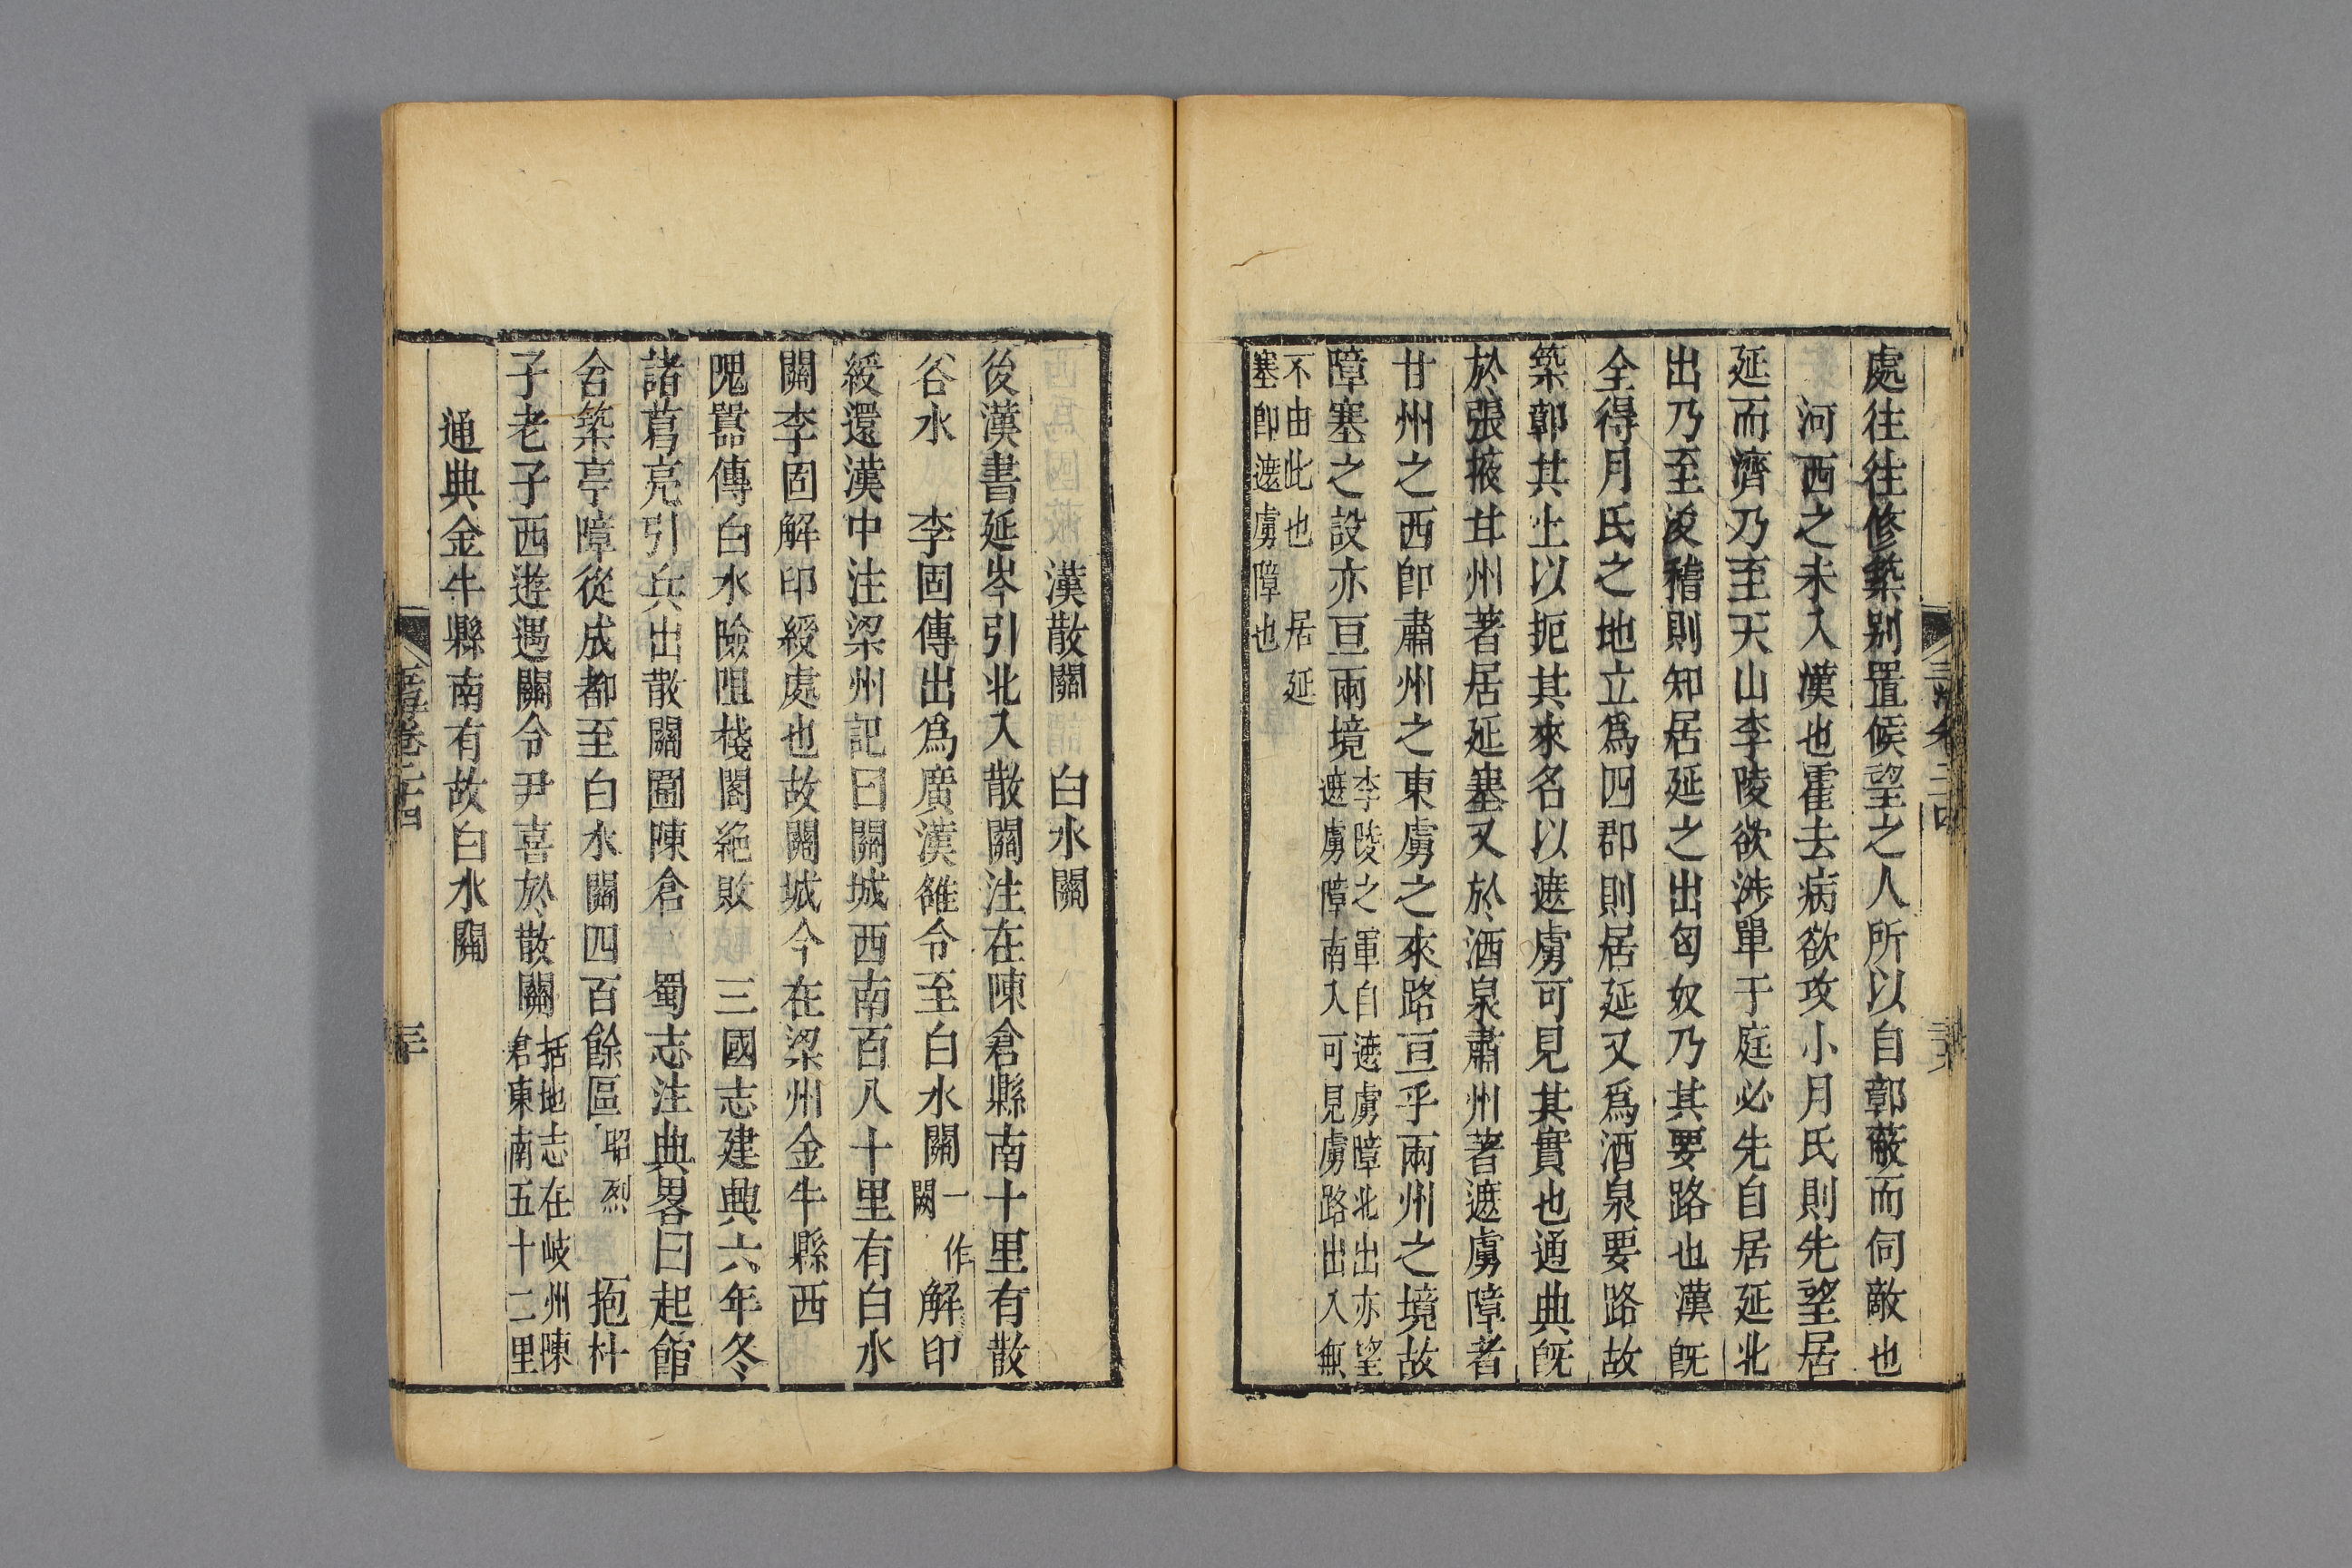 處往往修築別置候望之人所以自鄣蔽而伺敵也
河西之未入漢也霍去病欲攻小月氏則先望居
延而濟乃至天山李陵欲涉單于庭必先自居延北
出乃至浚稽則知居延之出匈奴乃其要路也漢旣
全得月氏之地立爲四郡則居延又爲酒泉要路故
築鄣其上以扼其來名以遮虜可見其實也通典旣
於張掖甘州著居延塞又於酒泉肅州著遮虜障者
甘州之西卽肅州之東虜之來路亘乎兩州之境故
障塞之設亦亘兩境李陵之軍自遮虜障北出亦望
遮虜障南入可見虜路出入無
不由此也 居延
塞卽遮虜障也
漢散關 白水關
後漢書延岑引北入散關注在陳倉縣南十里有散
谷水 李固傳出爲廣漢雒令至白水關一作
闕解印
綬還漢中注梁州記曰關城西南百八十里有白水
關李固解印綬處也故關城今在梁州金牛縣西
隗囂傳白水險阻棧閣絶敗 三國志建興六年冬
諸葛亮引兵出散關圍陳倉 蜀志注典畧曰起館
舍築亭障從成都至白水關四百餘區昭烈 抱朴
子老子西遊遇關令尹喜於散關括地志在岐州陳
君東南五十二里
通典金牛縣南有故白水關
卷二十四
三十